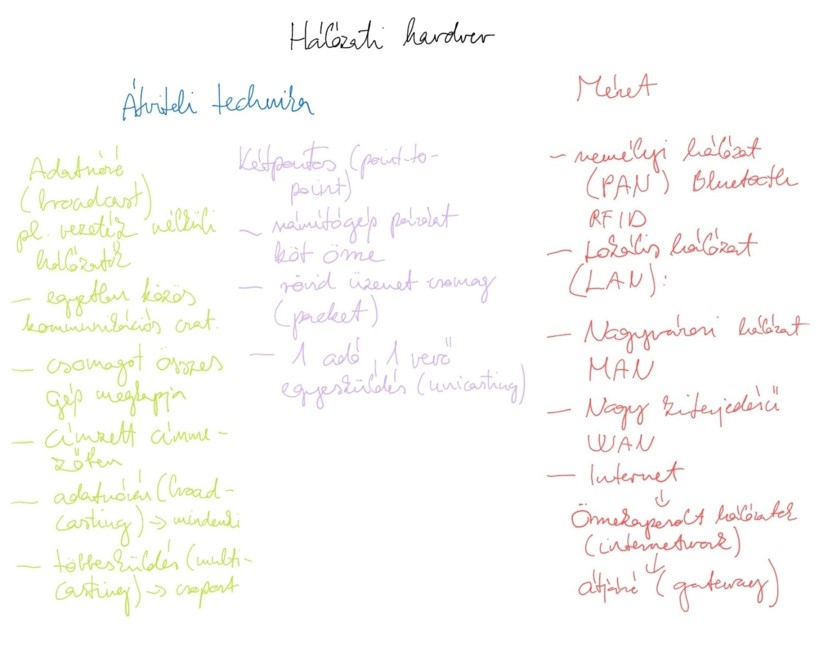 Hálózati hardver
Átviteli technika
Adatszóró
(broadcast)
pl. vezeték nélküli
hálózatok
– egyetlen közös
kommunikációs csat.
– csomagot összes
gép megkapja
– címzett címme-
zőben
– adatszórás (broad-
casting) → mindenki
– többesküldés (multi-
casting) → csoport
Kétpontos (point-to-
point)
– számítógép párokat
köt össze
– rövid üzenet csomag
(packet)
– 1 adó, 1 vevő
egyesküldés (unicasting)
Méret
– személyi hálózat
(PAN) Bluetooth
RFID
– Lokális hálózat
(LAN):
– Nagyvárosi hálózat
MAN
– Nagy kiterjedésű
WAN
– Internet
↓
Összekapcsolt hálózatok
(internetwork)
↓
átjáró (gateway)